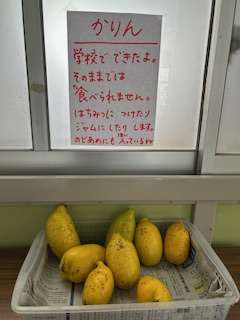 かりん
学校で できたよ。
そのままでは
食べられません。
はちみつに つけたり
ジャムにしたり します。
のどあめにも 入っているよ